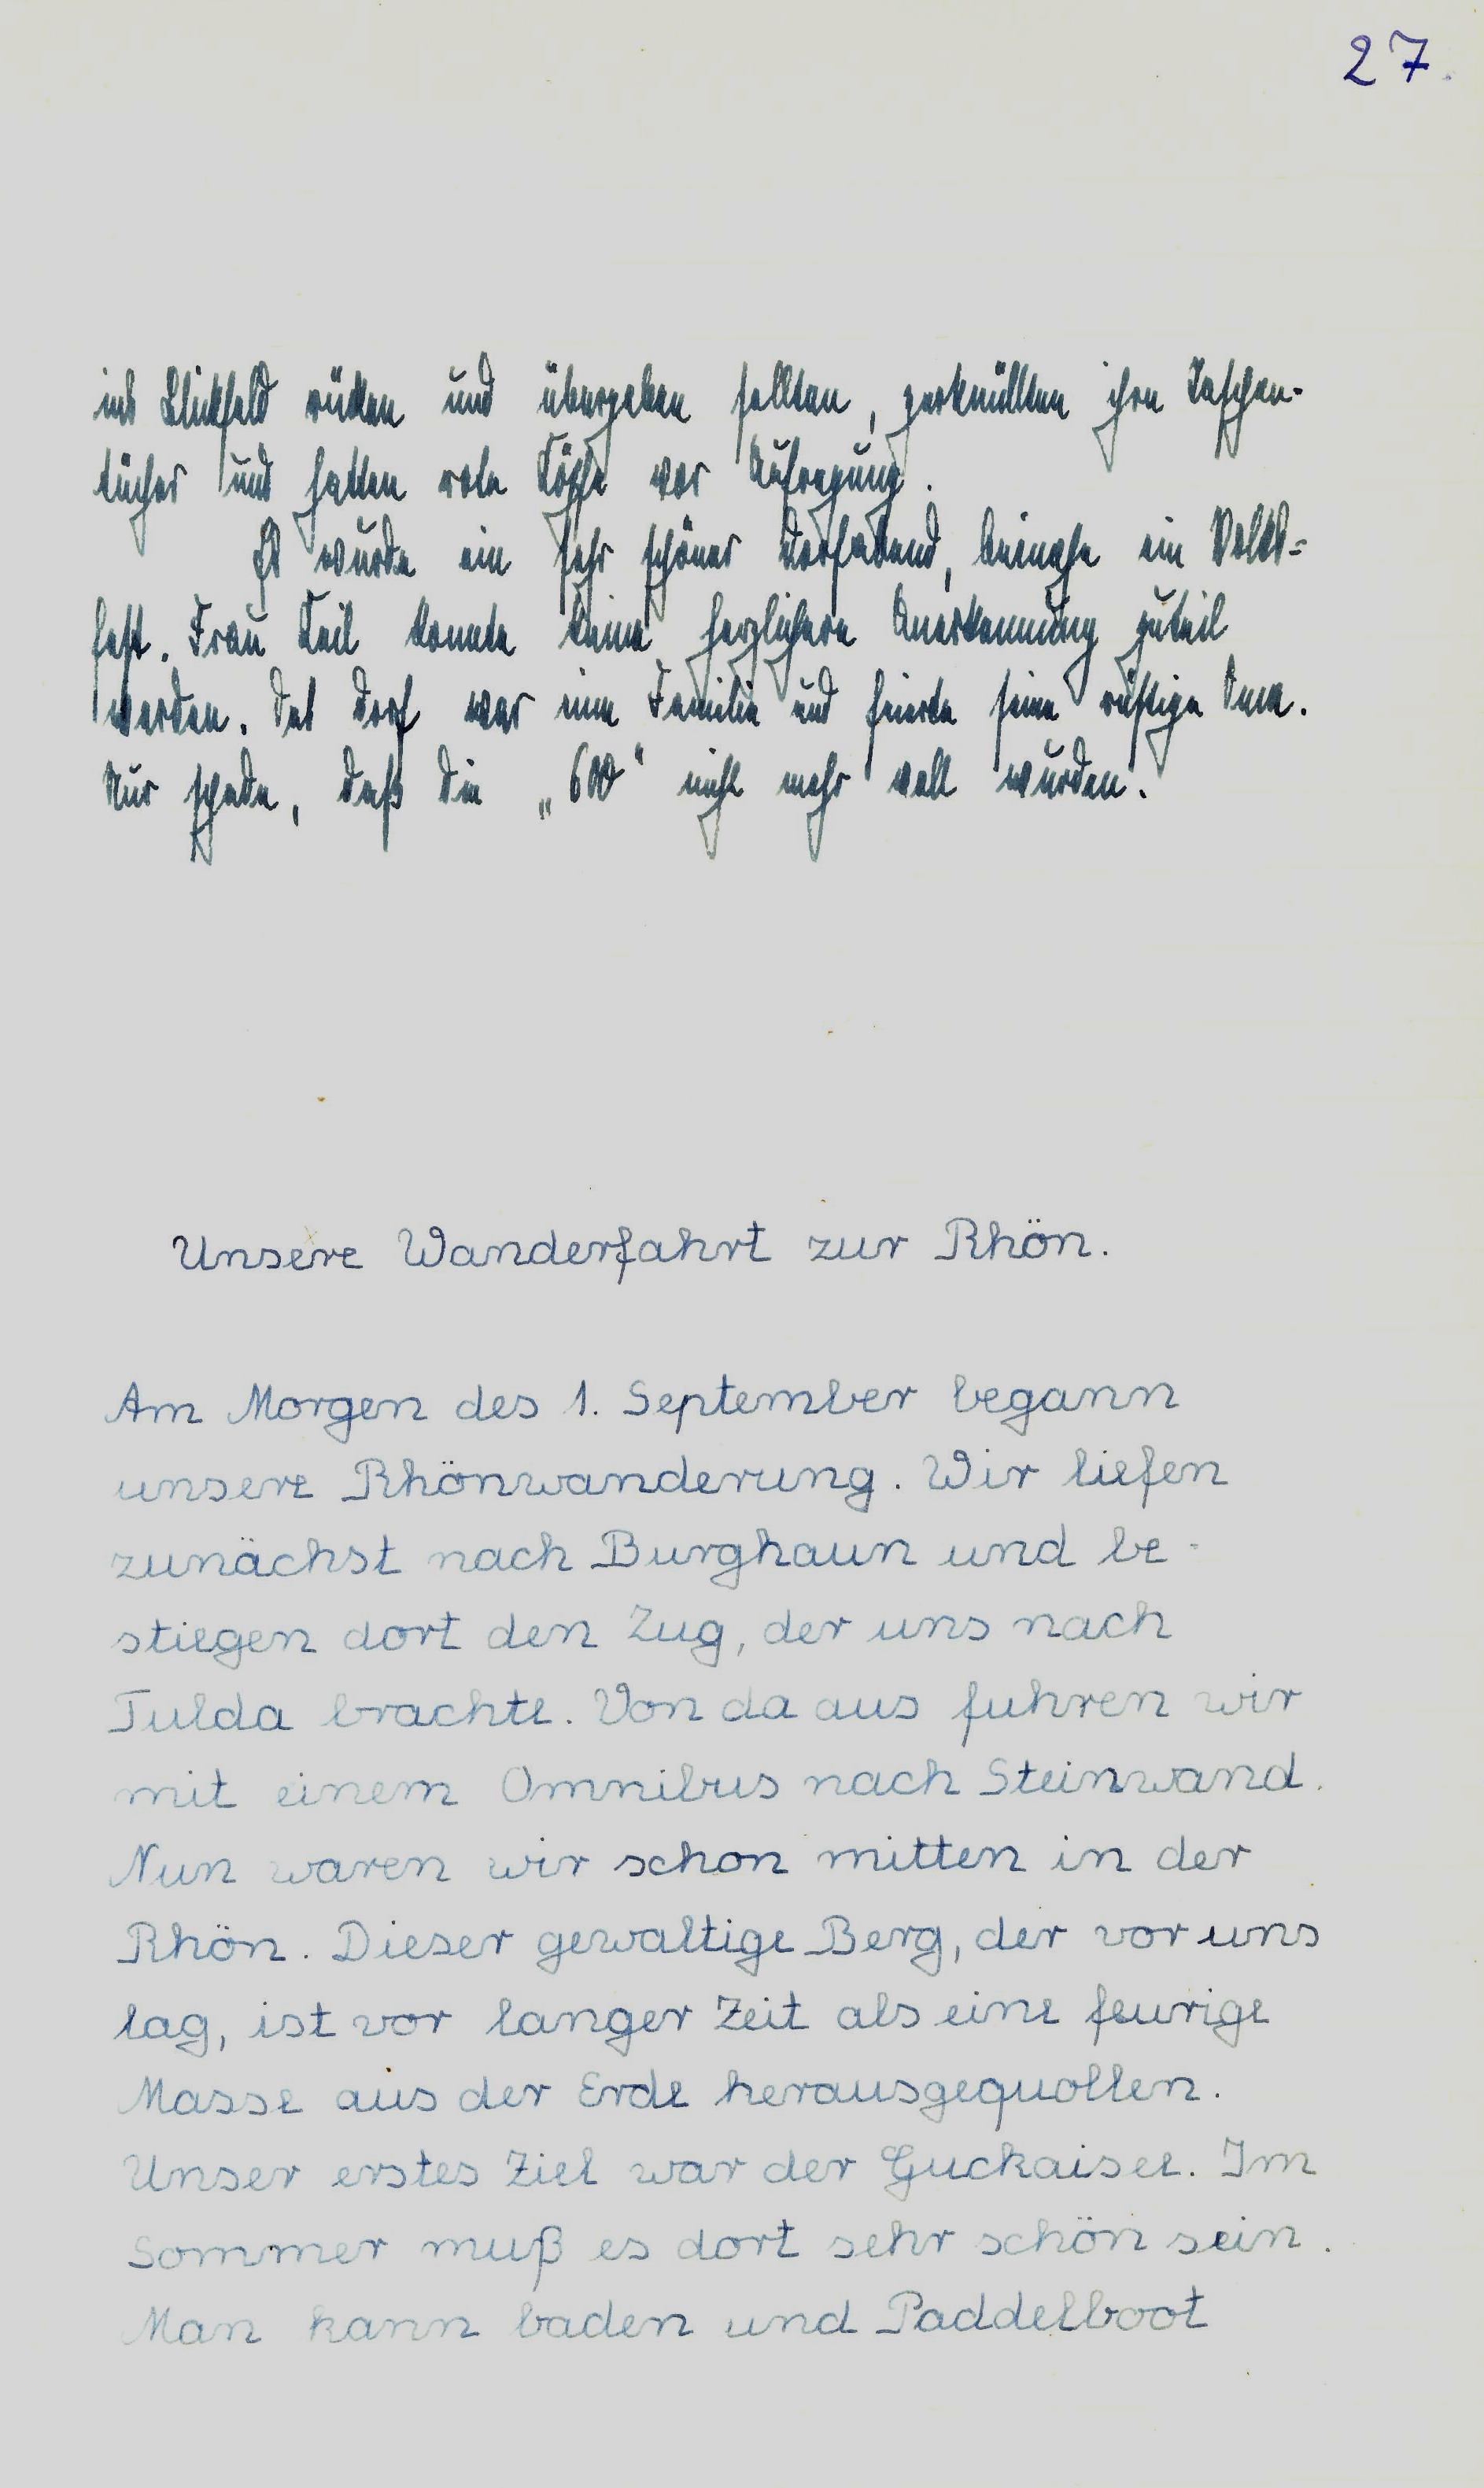 27.
ins Blickfeld rücken und übergeben sollten, zerknüllten ihre Taschen-
tücher und hatten rote Köpfe vor Aufregung.
Es wurde ein sehr schöner Dorfabend, beinahe ein Volks=
fest. Frau Keil konnte keine herzlichere Anerkennung zuteil
werden. Das Dorf war eine Familie und feierte seine rüstige Oma.
Nur schade, daß die „600" nicht mehr voll wurden.
Unsere Wanderfahrt zur Rhön.
Am Morgen des 1. September begann
unsere Rhönwanderung. Wir liefen
zunächst nach Burghaun und be-
stiegen dort den Zug, der uns nach
Fulda brachte. Von da aus fuhren wir
mit einem Omnibus nach Steinwand.
Nun waren wir schon mitten in der
Rhön. Dieser gewaltige Berg, der vor uns
lag, ist vor langer Zeit als eine feurige
Masse aus der Erde herausgequollen.
Unser erstes Ziel war der Guckaisee. Im
Sommer muß es dort sehr schön sein.
Man kann baden und Paddelboot